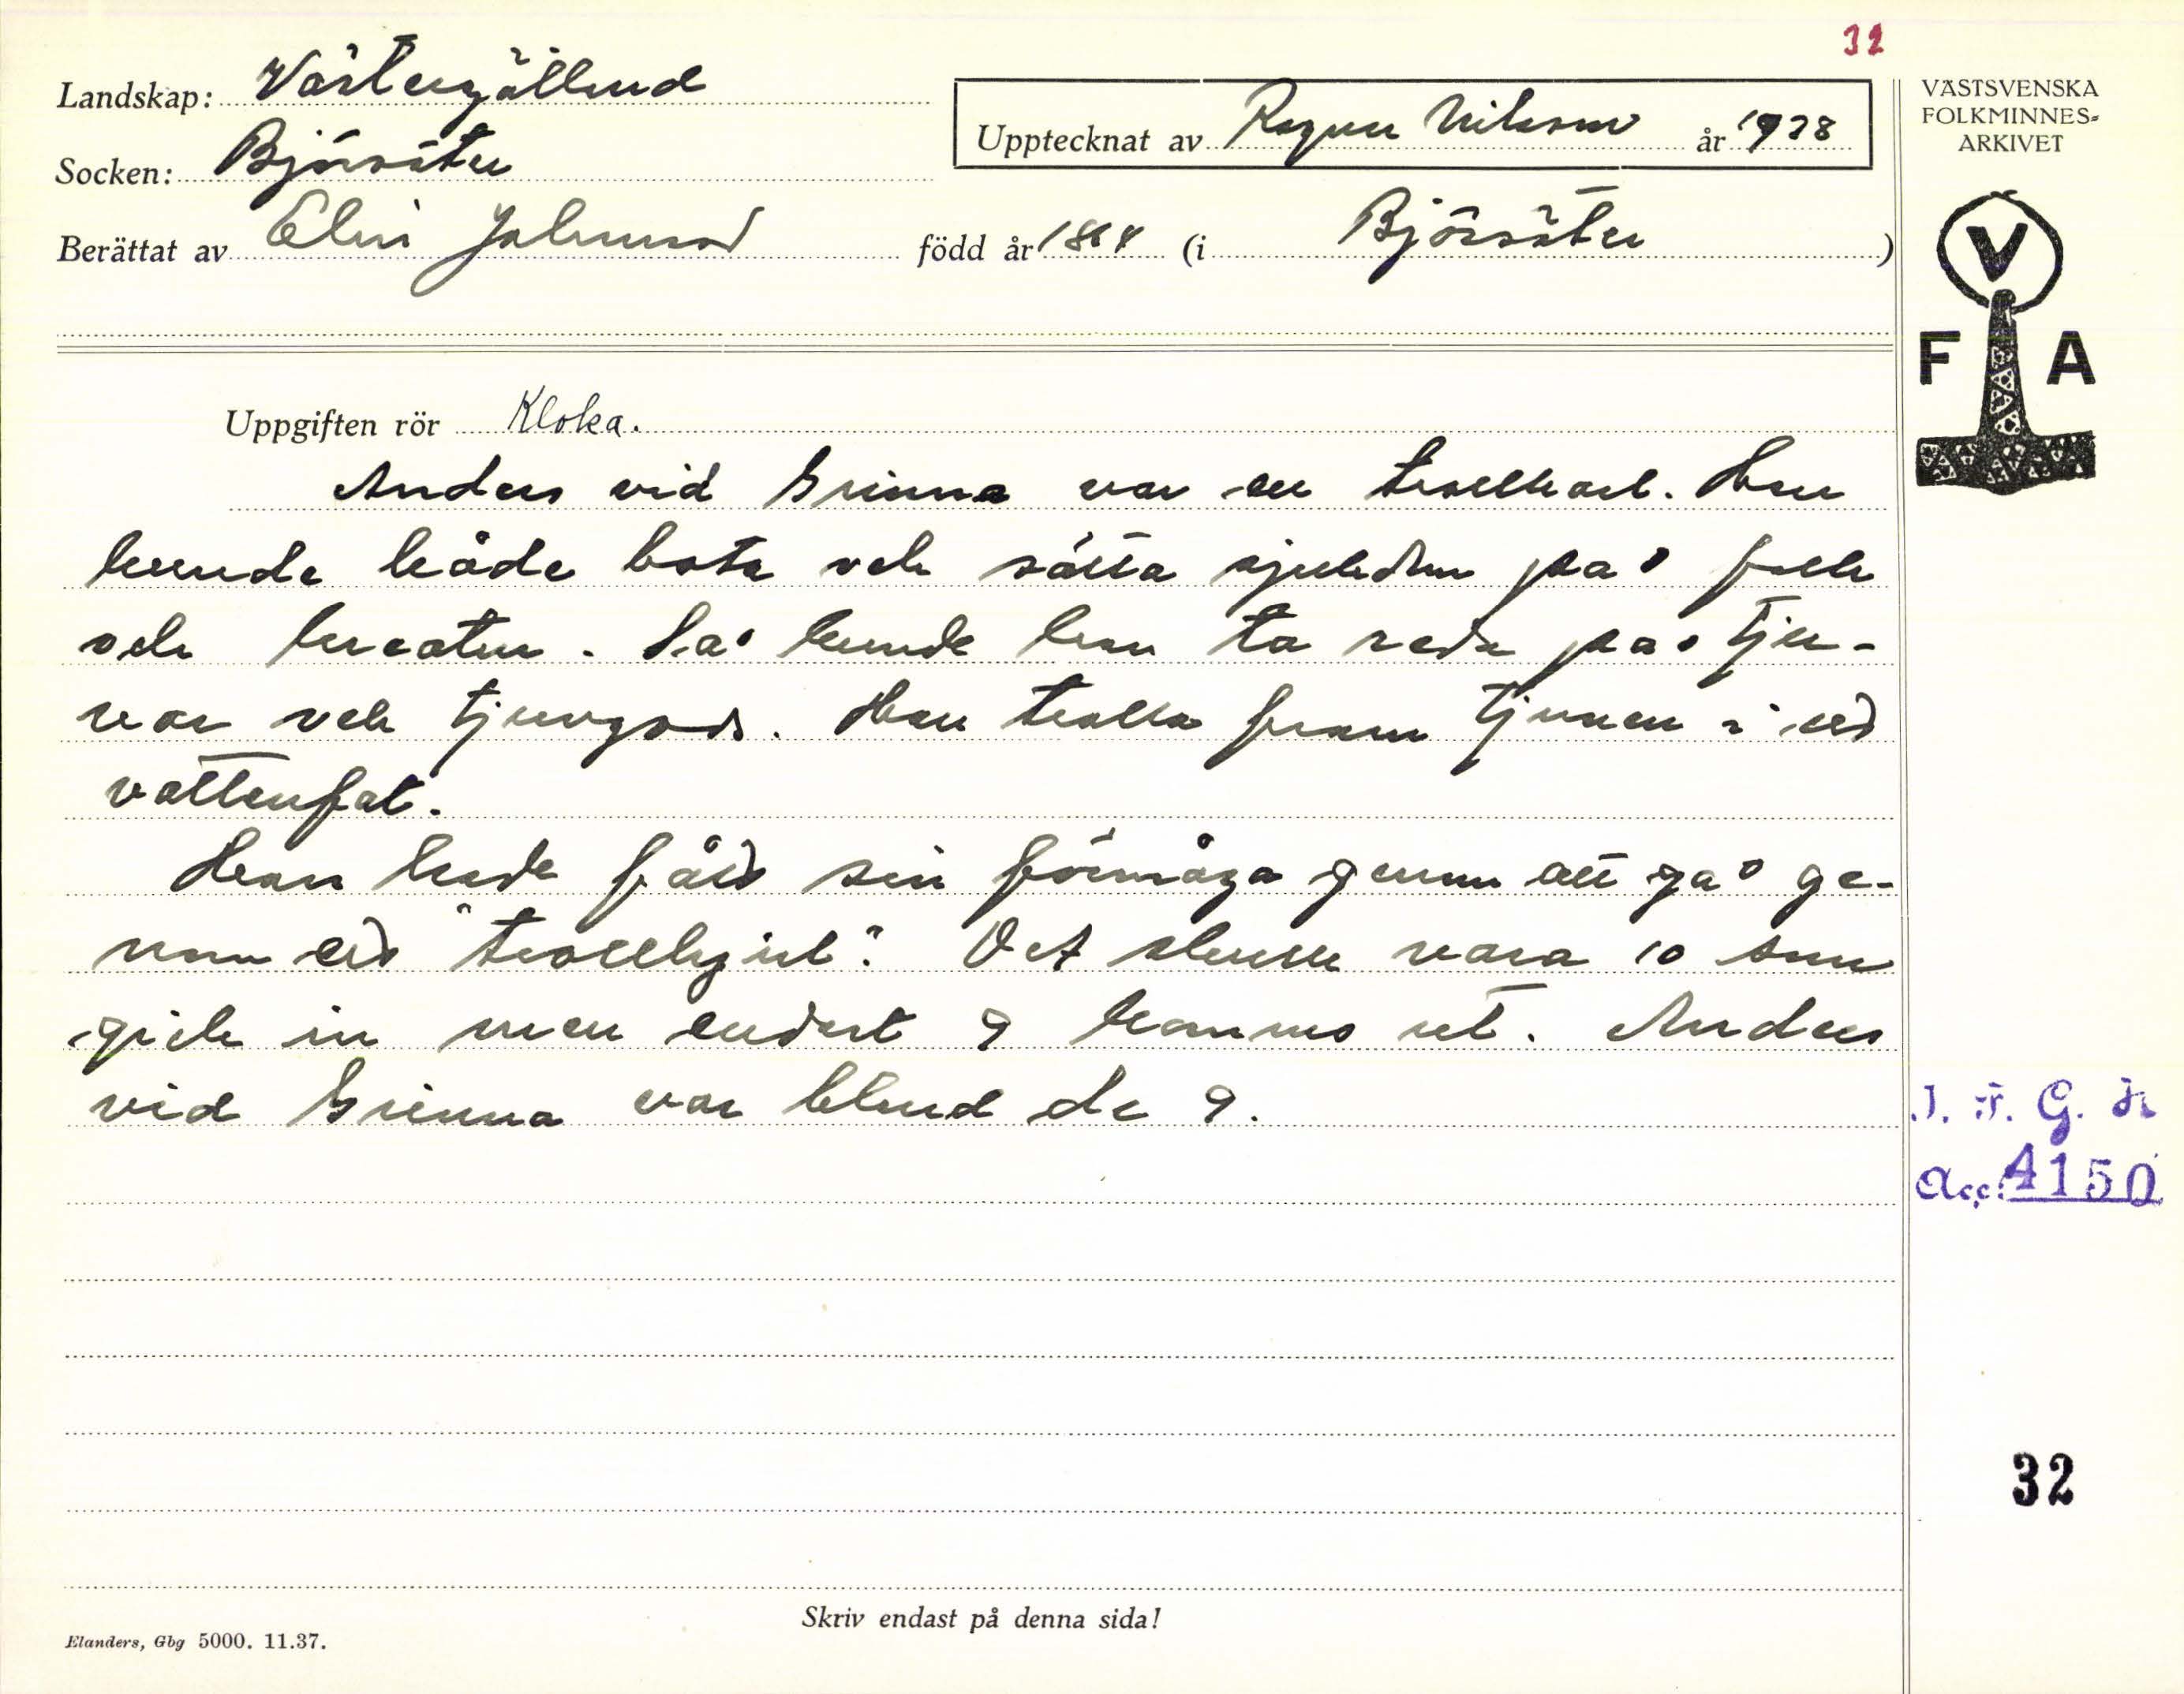 32
Landskap: Västergötland
Socken: Björsäter
Upptecknat av Ragnar Nilsson år 1938
Berättat av Elin Johansson född år 1864 (i Björsäter)
VÄSTSVENSKA
FOLKMINNES-
ARKIVET
V
F A
Uppgiften rör Kloka.
Anders vid Grinna var en trollkarl. Han
kunde både bota och sätta sjukdom på folk
och kreatur. Så kunde han ta reda på tju-
var och tjuvgods. Han trolla fram tjuven i ett
vattenfat.
Han hade fått sin förmåga genom att gå ge-
nom ett "trollhjul". Det skulle vara 10 som
gick in men endast 9 komma ut. Anders
vid Grinna var bland de 9.
I. F. G. H.
Acc. 4150
32
Skriv endast på denna sida!
Elanders, Gbg 5000. 11.37.